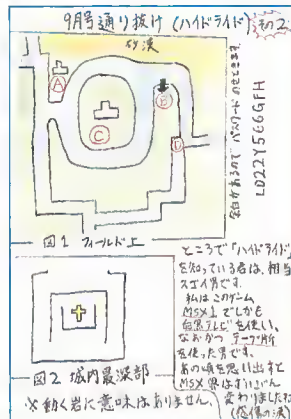 9月号通り抜け(ハイドライド)その2
砂漠
A
B
C
D
余白があるのでパスワードのせときます。
LD22Y5GGGFH
図1 フィールド上
図2 城内最深部
※動く岩に意味はありません。
ところで「ハイドライド」
を知っている君は、相当
スゴイ男です。
私はこのゲーム
MSX1でしかも
白黒テレビを使い、
なおかつテープ版
を使った男です。
あの頃を思い出すと
MSX界はずいぶん
変わりましたね
(感慨の涙)